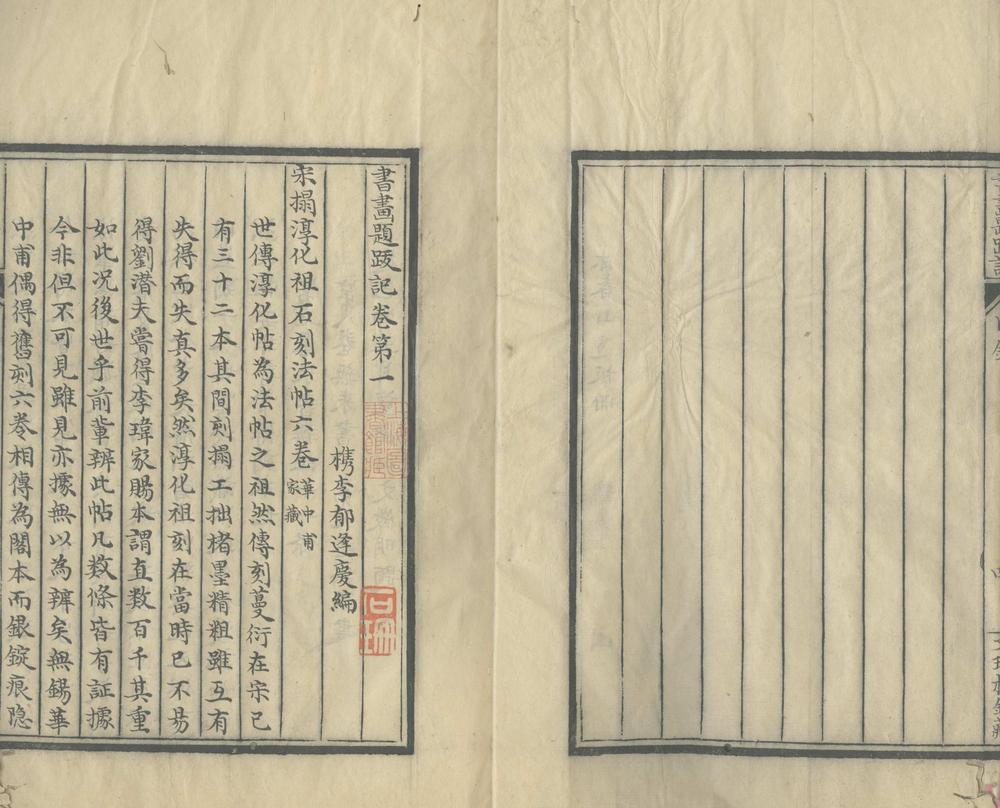 書畫題跋記卷第一
檇李郁逢慶編
宋搨淳化祖石刻法帖六巻 華中甫家藏
世傳淳化帖為法帖之祖然傳刻蔓衍在宋已
有三十二本其間刻搨工拙楮墨精粗雖互有
失得而失真多矣然淳化祖刻在當時已不易
得劉潜夫嘗得李瑋家賜本謂直数百千其重
如此况後世乎前輩辨此帖凡数條皆有証據
今非但不可見雖見亦據無以為辨矣無錫華
中甫偶得舊刻六巻相傳為閣本而銀錠痕隐
石珊